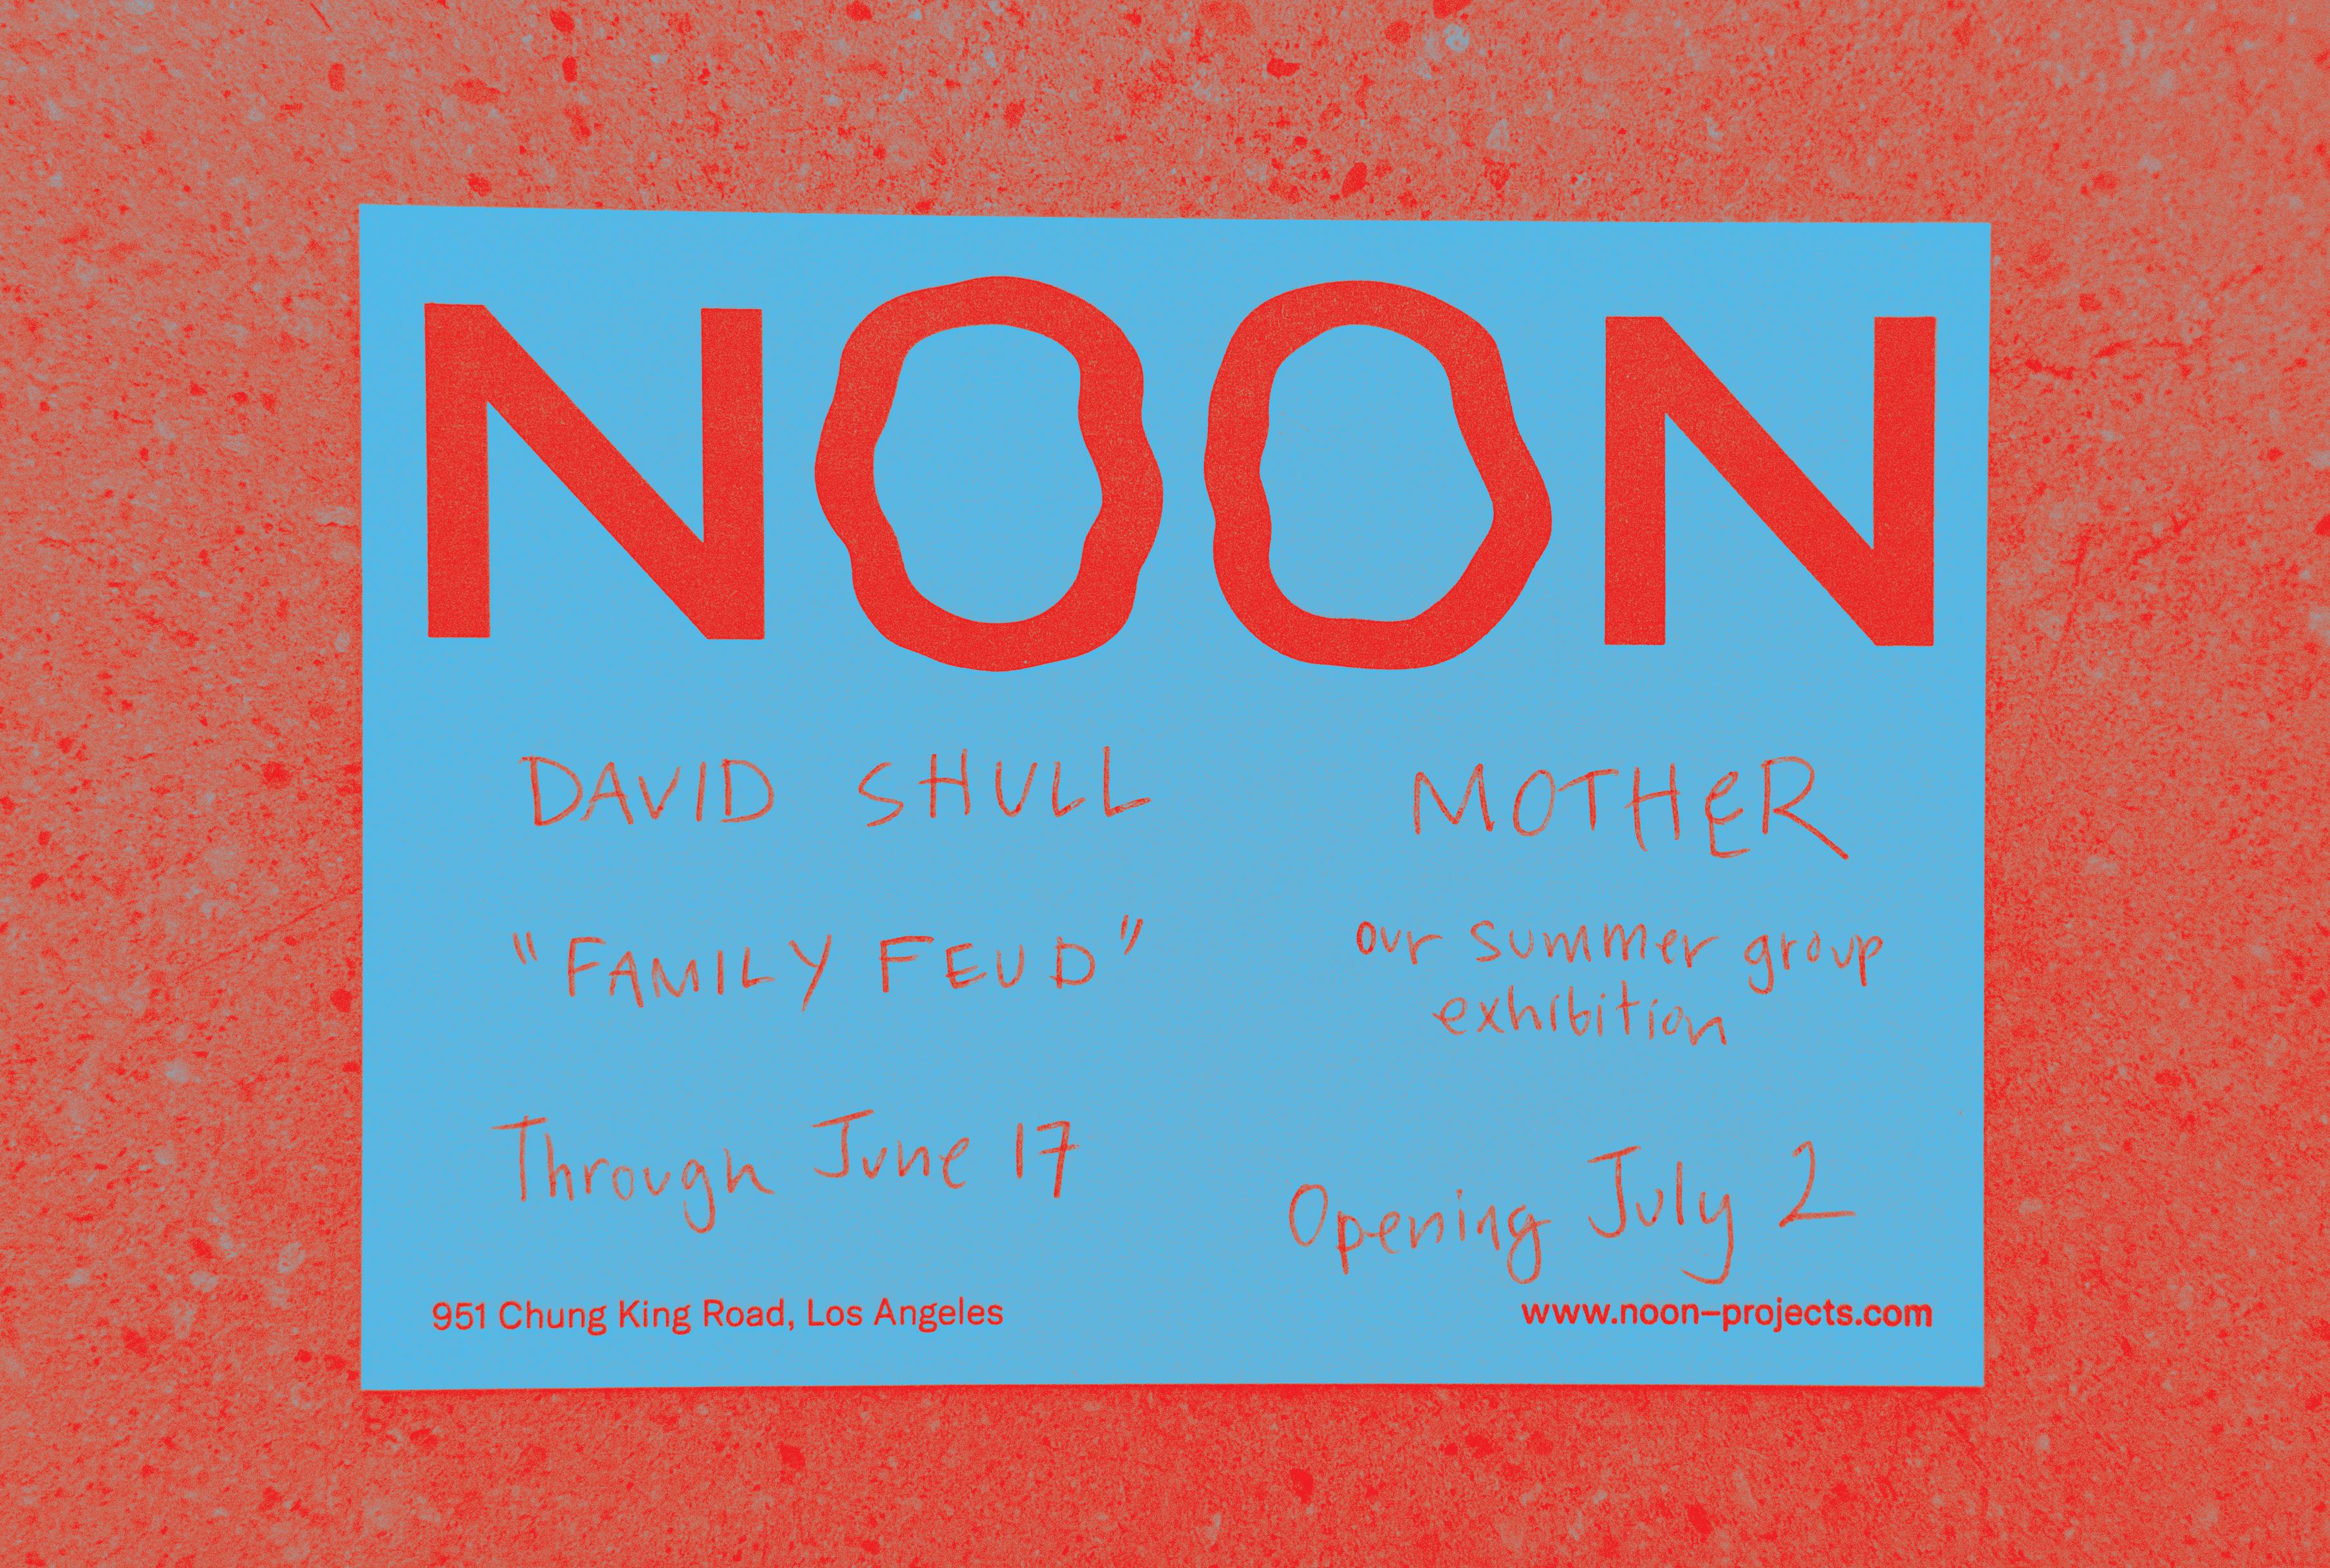 NOON
DAVID SHULL
"FAMILY FEUD"
Through June 17
MOTHER
our summer group
exhibition
Opening July 2
951 Chung King Road, Los Angeles
www.noon-projects.com